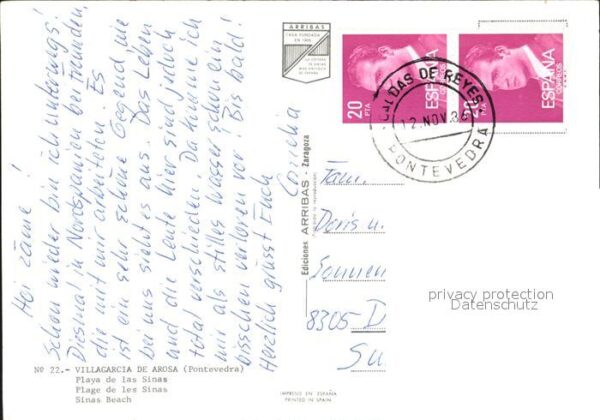 Hoi zäme!
Schon wieder bin ich unterwegs!
Diesmal in Nordspanien bei Freunden,
die mit mir arbeiteten. Es
ist ein sehr schöne Gegend wie
bei uns sieht es aus. Das Leben
und die Leute hier sind jedoch
total verschieden. Da komme ich
mir als stilles Wasser schon ein
bisschen verloren vor! Bis bald!
Herzlich grüsst Euch
Cornelia
ARRIBAS
CASA FUNDADA
Ediciones ARRIBAS - Zaragoza
20
PTA
ESPAÑA
CORREOS
20
PTA
ESPAÑA
CORREOS
CALDAS DE REYES
12.NOV.86
PONTEVEDRA
Fam.
Doris u.
8305 D
privacy protection
Datenschutz
Nº 22.- VILLAGARCIA DE AROSA (Pontevedra)
Playa de las Sinas
Plage de les Sinas
Sinas Beach
IMPRESO EN ESPAÑA
PRINTED IN SPAIN